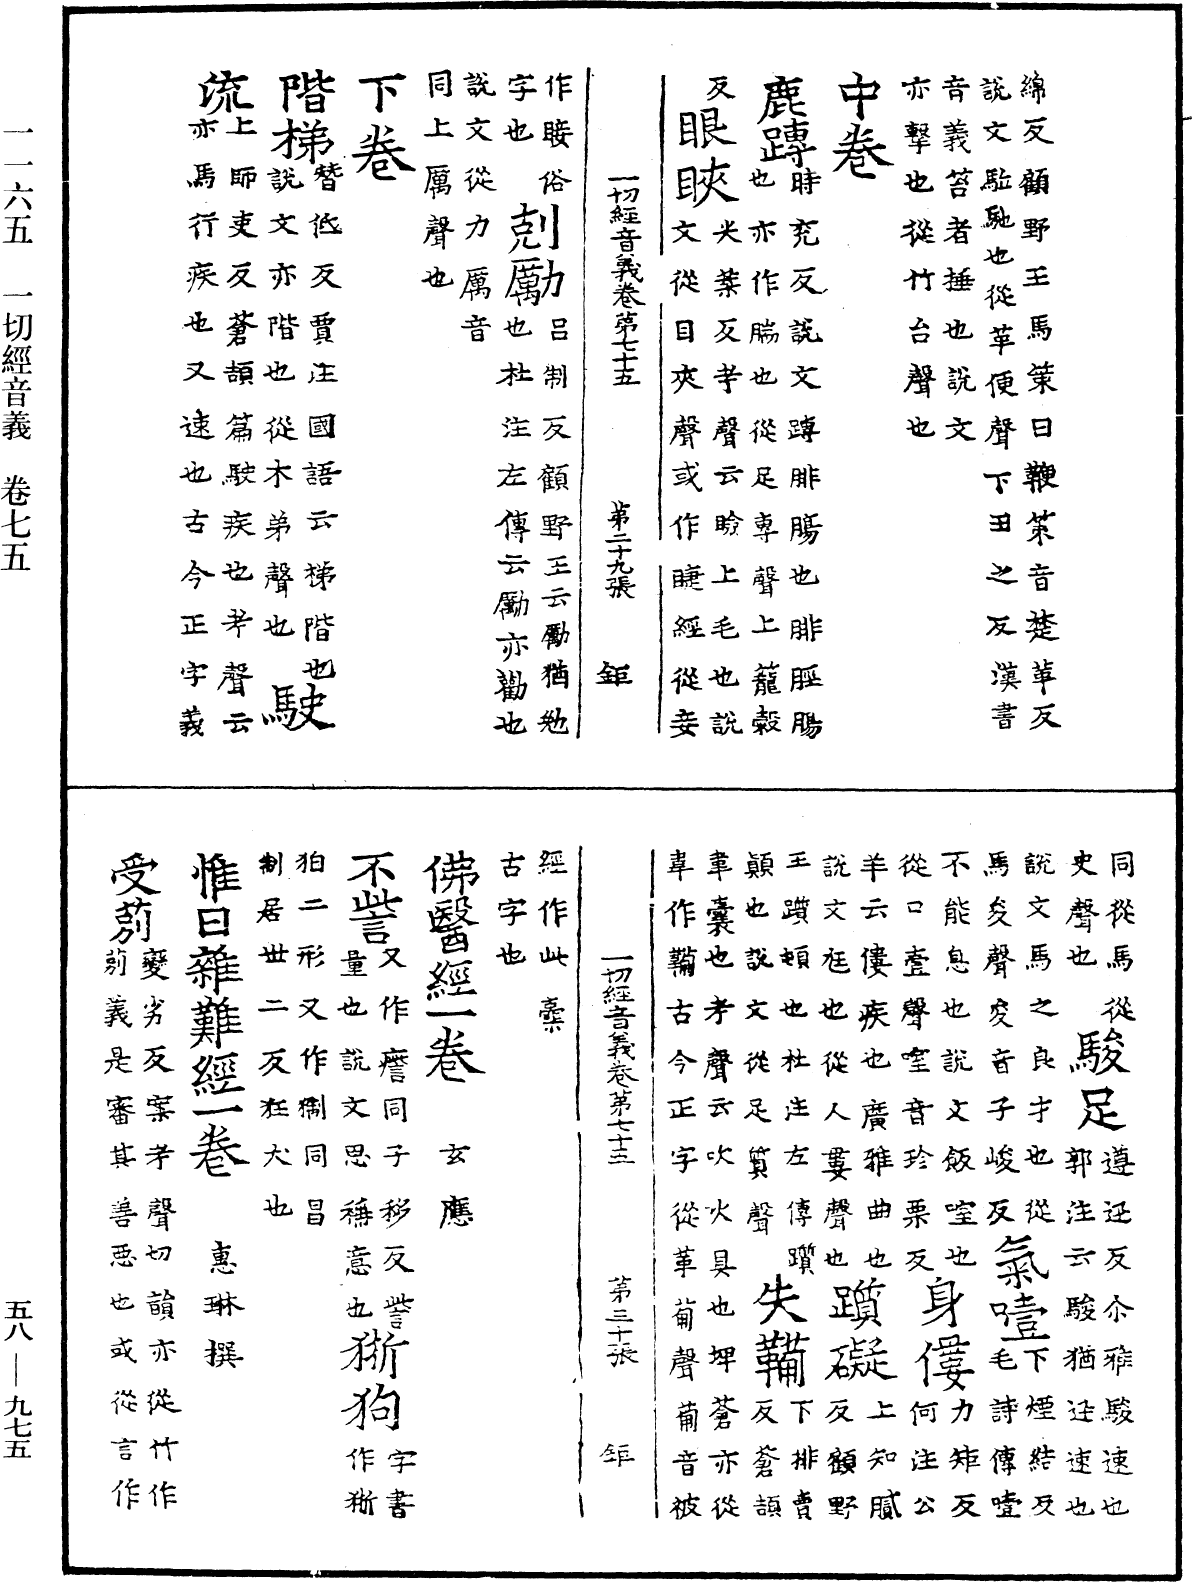 綿反顧野王馬策曰鞭策音楚革反
說文駈馳也從革便聲下丑之反漢書
音義笞者捶也說文
亦擊也從竹台聲也
中卷
鹿䏝時兖反說文䏝腓腸也腓脛腸
也亦作腨也從足專聲上籠穀
反眼睞尖葉反考聲云瞼上毛也說
文從目夾聲或作睫經從妾
一切經音義卷第七十五 第二十九張 鉅
作䁪俗剋勵呂制反顧野王云勵猶勉
字也也杜注左傳云勵亦勸也
說文從力厲音
同上厲聲也
下卷
階梯替低反賈注國語云梯階也
說文亦階也從木弟聲也駛
流上師吏反蒼頡篇駛疾也考聲云
亦馬行疾也又速也古今正字義
同從馬從駿足遵迅反尒雅駿速也
史聲也郭注云駿猶迅速也
說文馬之良才也從氣噎下煙結反
馬夋聲夋音子峻反毛詩傳噎
不能息也說文飯窒也身僂力矩反
從口壹聲窒音珍栗反何注公
羊云僂疾也廣雅曲也躓礙上知膩
說文尫也從人婁聲也反顧野
王躓頓也杜注左傳躓失鞴下排賣
顛也說文從足質聲反蒼頡
韋囊也考聲云吹火具也埤蒼亦從
韋作韛古今正字從革葡聲葡音被
一切經音義卷第七十五 第三十張 鉅
經作此橐
古字也
佛醫經一卷 玄應
不訾又作䜅同子移反訾
量也說文思稱意也猘狗字書
作狾
狛二形又作猘同昌
制居世二反狂犬也
惟曰雜難經一卷 惠琳撰
受莂變劣反案考聲切韻亦從竹作
莂義是審其善惡也或從言作
一一六五 一切經音義 卷七五
五八—九七五